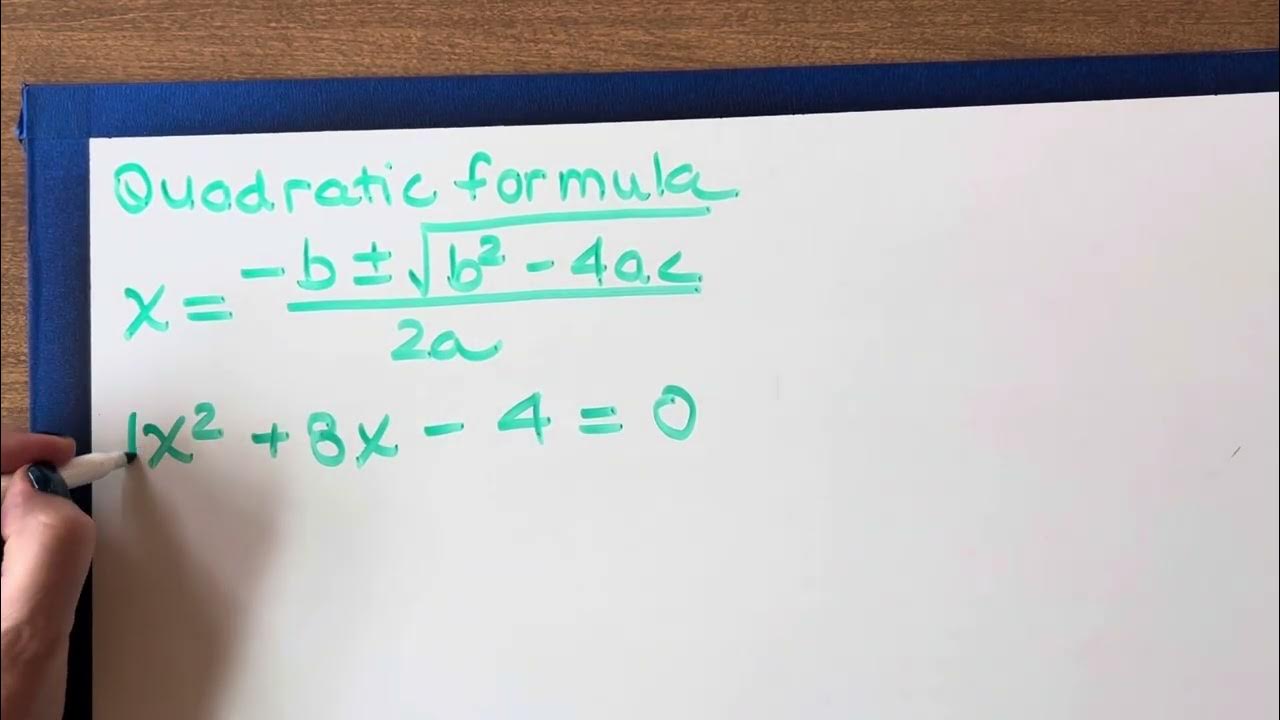 Quadratic formula
x = -b ± √b² - 4ac
2a
1x² + 8x - 4 = 0